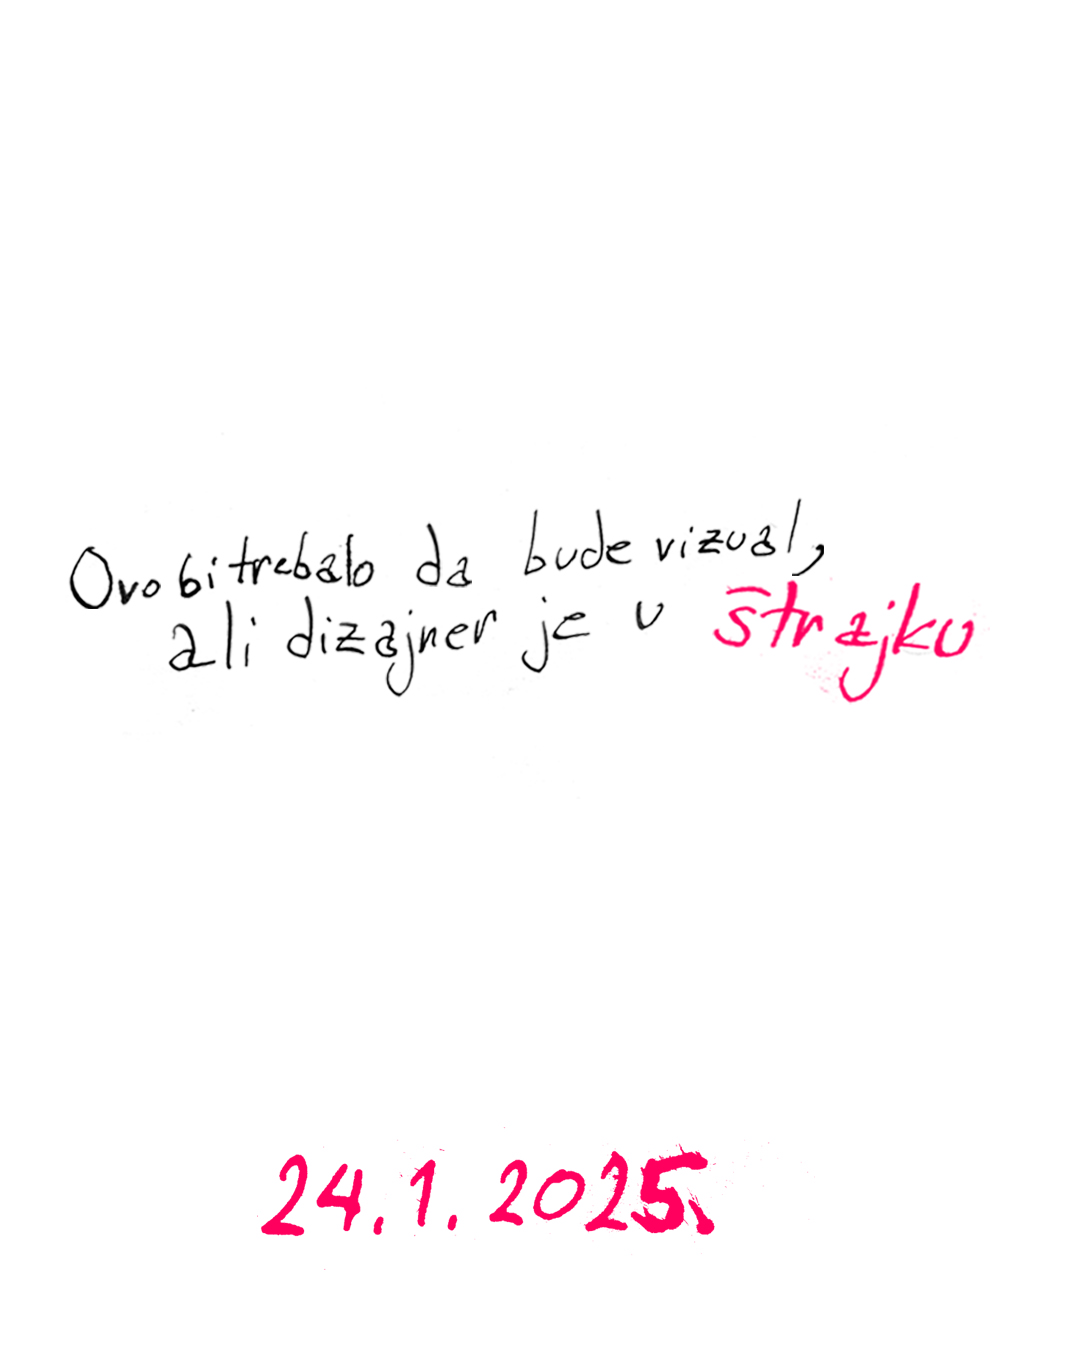 Ovo bi trebalo da bude vizual,
ali dizajner je u štrajku
24.1.2025.